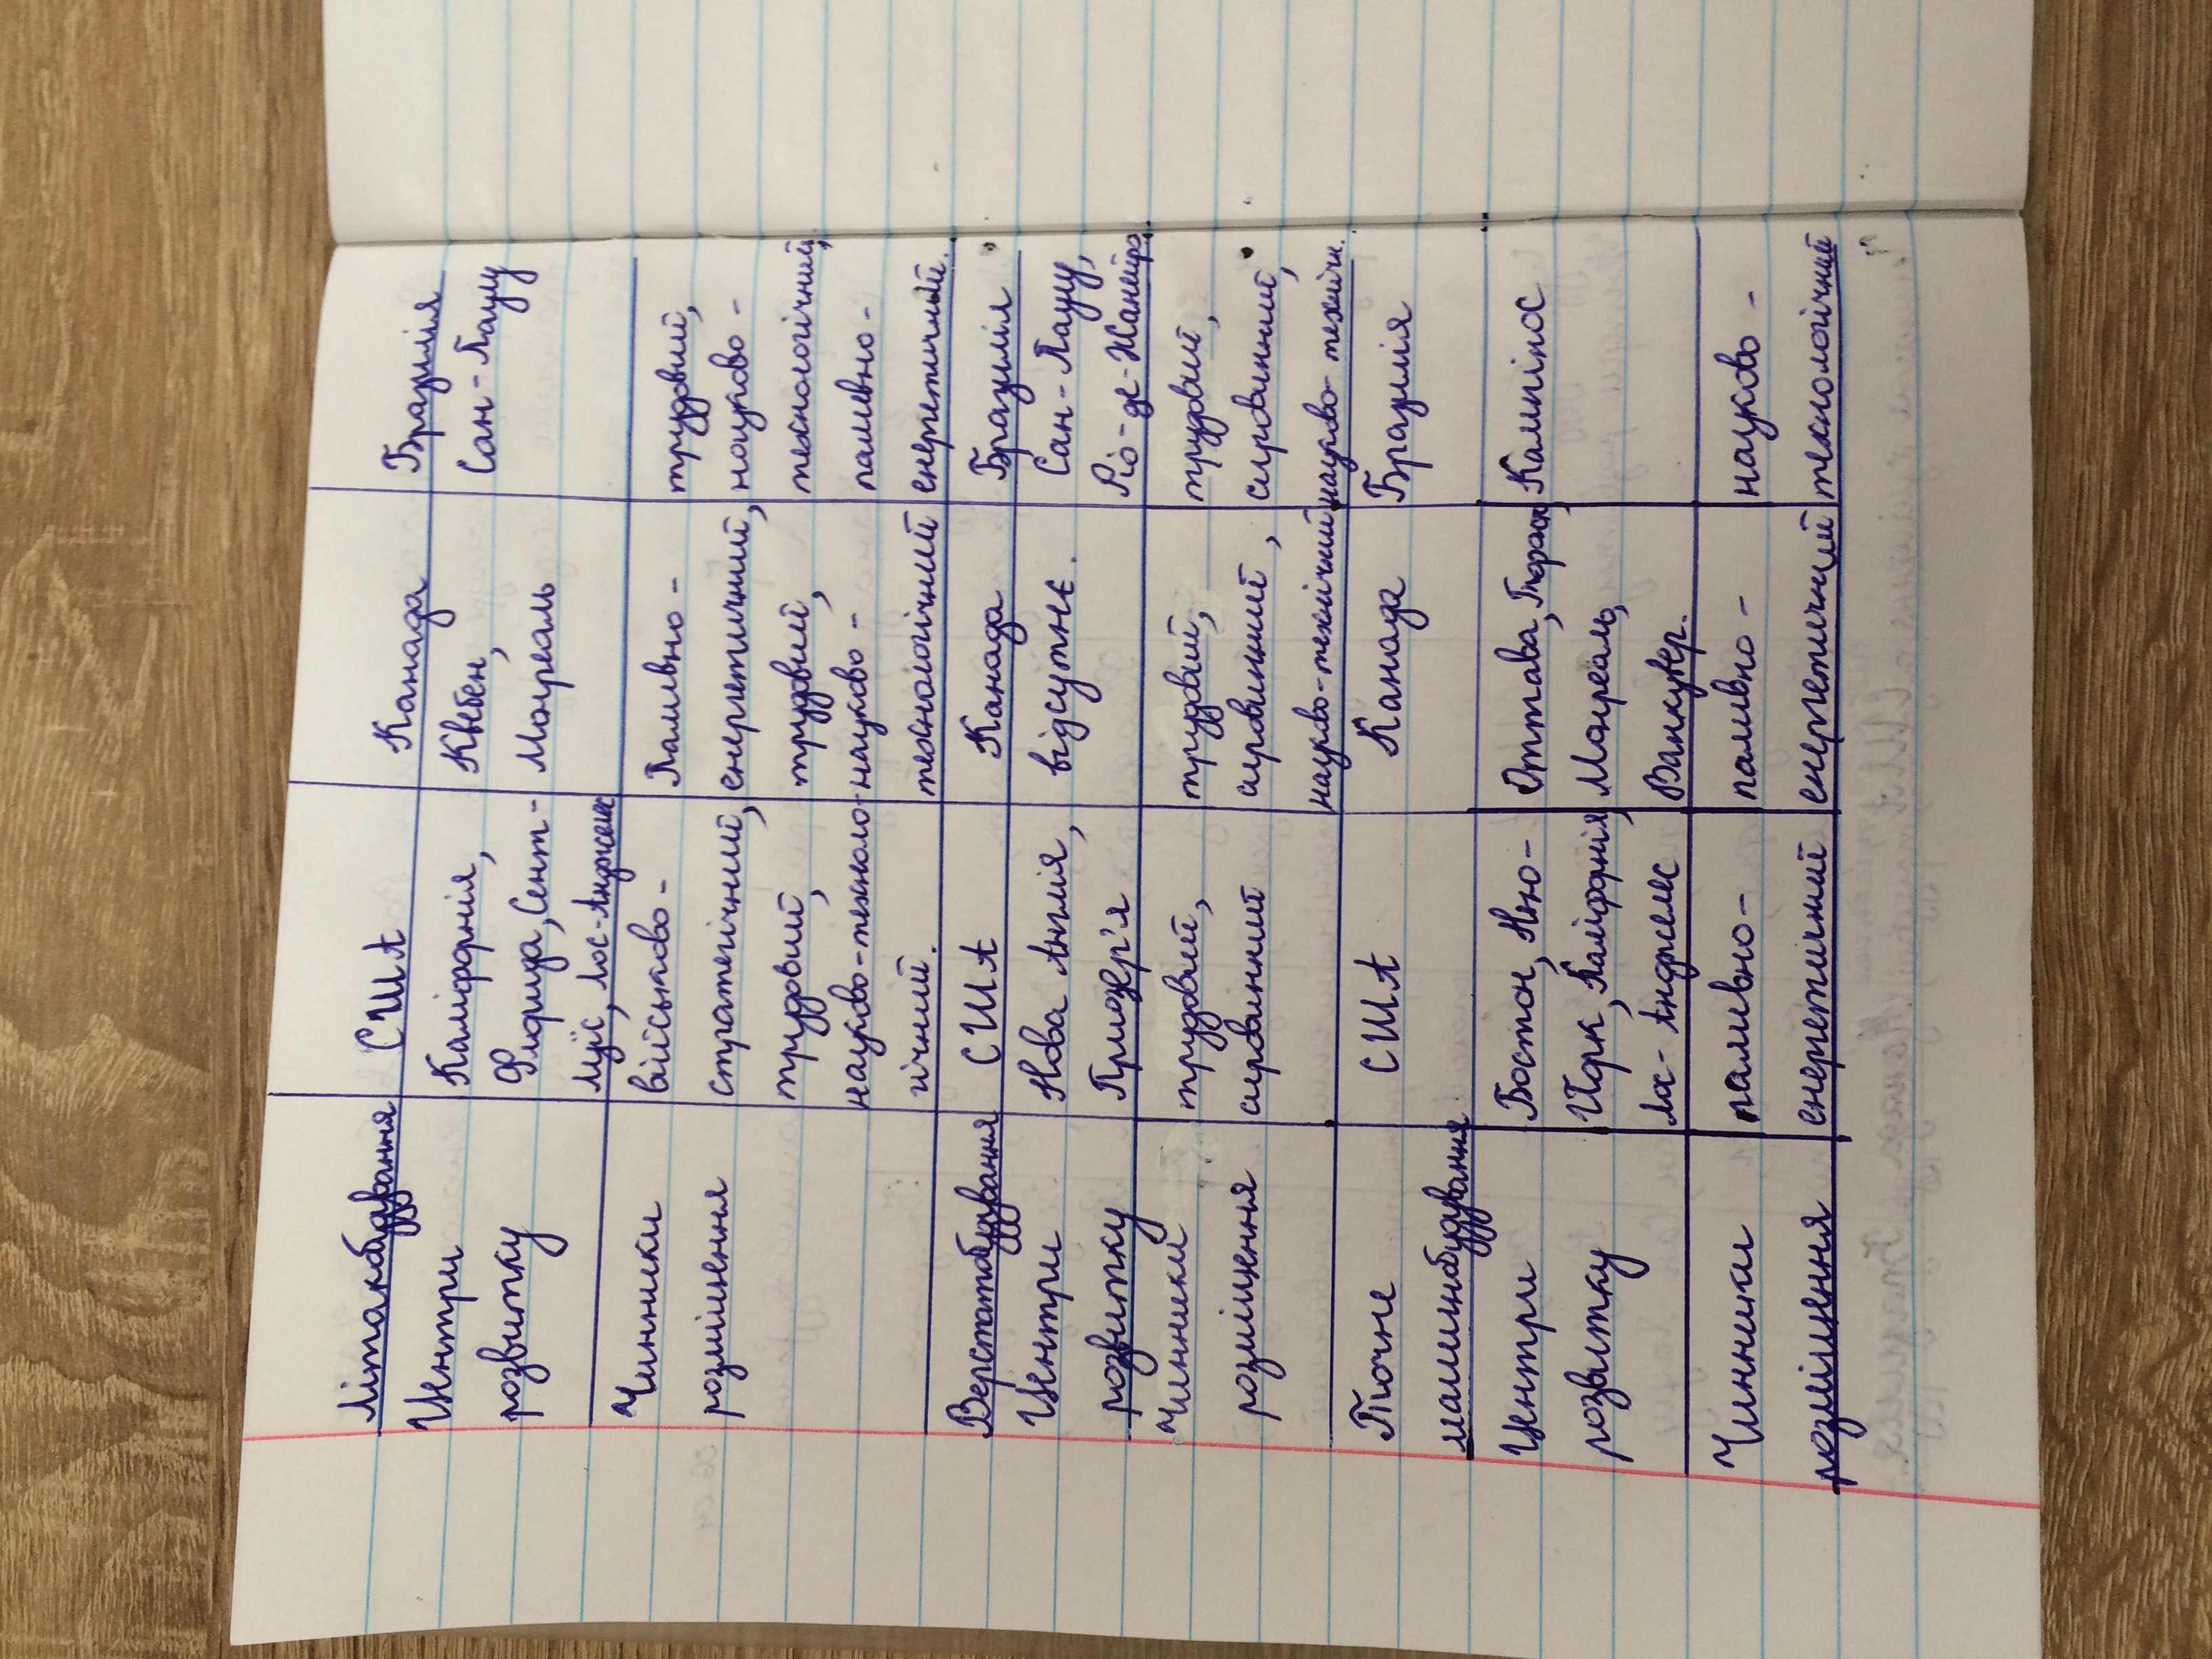 Літакобудування США Канада Бразилія
Центри Каліфорнія, Квебек, Сан-Паулу
розвитку Флорида, Сент- Монреаль
Луїс, Лос-Анджелес
Чинники військово- Паливно- трудовий,
розміщення стратегічний, енергетичний, науково-
трудовий, трудовий, технологічний,
науково-техноло- науково- паливно-
гічний. технологічний енергетичний.
Верстатобудування США Канада Бразилія
Центри Нова Англія, відсутнє. Сан-Паулу,
розвитку Приозер'я Ріо-де-Жанейро
Чинники трудовий, трудовий, трудовий,
розміщення сировинний сировинний, сировинний,
науково-технічний науково-технічн.
Точне США Канада Бразилія
машинобудування
Центри Бостон, Нью- Оттава, Торонто Кампінас
розвитку Йорк, Каліфорнія, Монреаль,
Лос-Анджелес Ванкувер.
Чинники паливно- паливно- науково-
розміщення енергетичний енергетичний технологічний